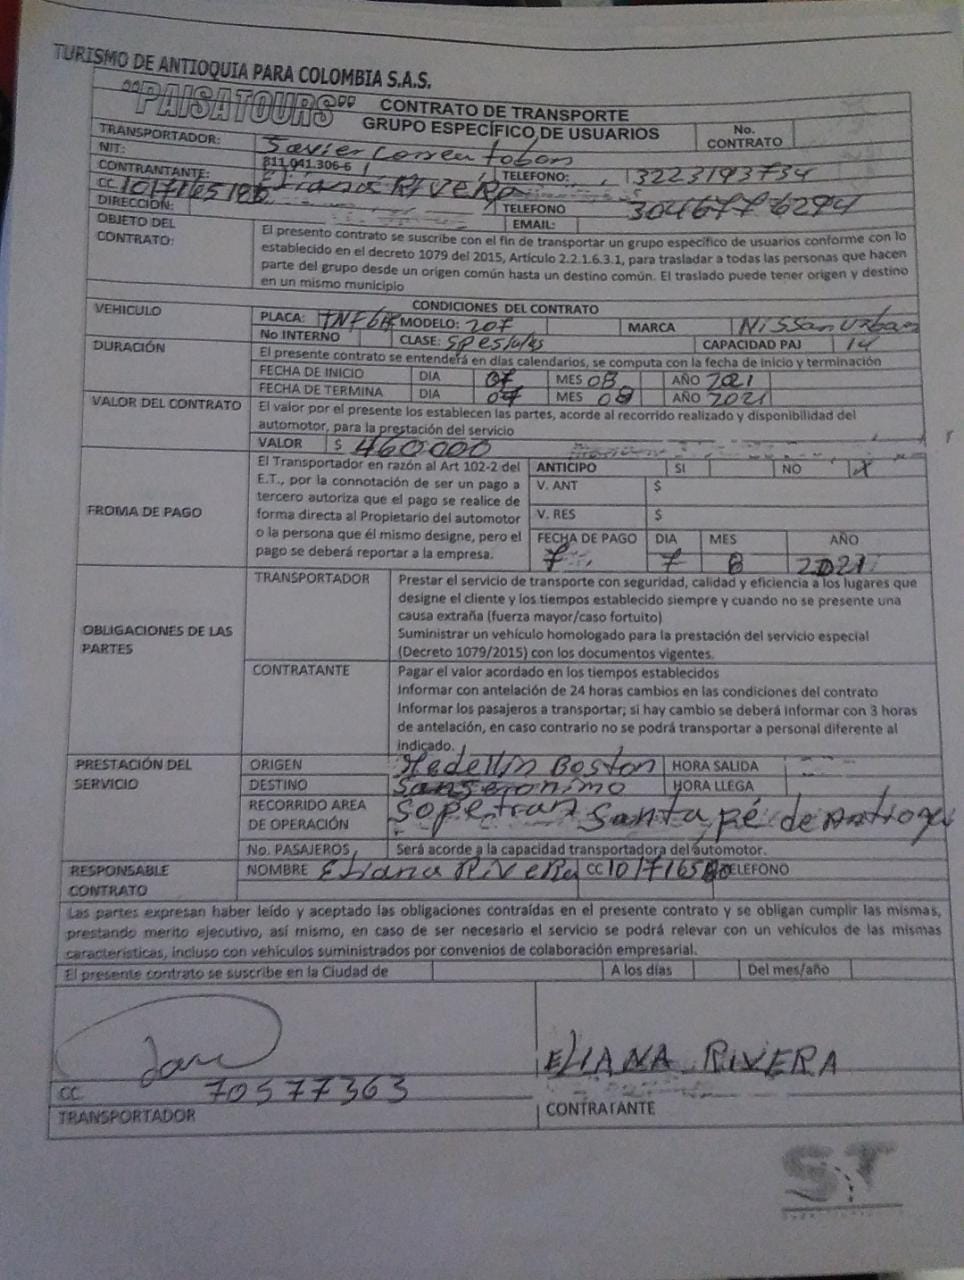 TURISMO DE ANTIOQUIA PARA COLOMBIA S.A.S.
"PAISATOURS" CONTRATO DE TRANSPORTE
GRUPO ESPECÍFICO DE USUARIOS No. CONTRATO
TRANSPORTADOR: Javier Correa Tobon
NIT: 811.041.306-6 TELEFONO: 3223193734
CONTRANTANTE: Eliana RIVERA
CC TELEFONO 3046776294
DIRECCIÓN: EMAIL:
OBJETO DEL CONTRATO: El presento contrato se suscribe con el fin de transportar un grupo específico de usuarios conforme con lo
establecido en el decreto 1079 del 2015, Artículo 2.2.1.6.3.1, para trasladar a todas las personas que hacen
parte del grupo desde un origen común hasta un destino común. El traslado puede tener origen y destino
en un mismo municipio
CONDICIONES DEL CONTRATO
VEHICULO PLACA: MODELO: 207 MARCA Nissan Urban
No INTERNO CLASE: CAPACIDAD PAJ 14
DURACIÓN El presente contrato se entenderá en días calendarios, se computa con la fecha de inicio y terminación
FECHA DE INICIO DIA 07 MES 08 AÑO 2021
FECHA DE TERMINA DIA 07 MES 08 AÑO 2021
VALOR DEL CONTRATO El valor por el presente los establecen las partes, acorde al recorrido realizado y disponibilidad del
automotor, para la prestación del servicio
VALOR $ 460000
FROMA DE PAGO El Transportador en razón al Art 102-2 del
E.T., por la connotación de ser un pago a
tercero autoriza que el pago se realice de
forma directa al Propietario del automotor
o la persona que él mismo designe, pero el
pago se deberá reportar a la empresa.
ANTICIPO SI NO X
V. ANT $
V. RES $
FECHA DE PAGO DIA MES AÑO
7 7 8 2021
OBLIGACIONES DE LAS PARTES
TRANSPORTADOR Prestar el servicio de transporte con seguridad, calidad y eficiencia a los lugares que
designe el cliente y los tiempos establecido siempre y cuando no se presente una
causa extraña (fuerza mayor/caso fortuito)
Suministrar un vehículo homologado para la prestación del servicio especial
(Decreto 1079/2015) con los documentos vigentes.
CONTRATANTE Pagar el valor acordado en los tiempos establecidos
Informar con antelación de 24 horas cambios en las condiciones del contrato
Informar los pasajeros a transportar; si hay cambio se deberá informar con 3 horas
de antelación, en caso contrario no se podrá transportar a personal diferente al
indicado.
PRESTACIÓN DEL SERVICIO ORIGEN Medellín Boston HORA SALIDA
DESTINO Sanjeronimo HORA LLEGA
RECORRIDO AREA DE OPERACIÓN Sopetran Santa fé de Antioquia
No. PASAJEROS Será acorde a la capacidad transportadora del automotor.
RESPONSABLE CONTRATO NOMBRE Eliana Rivera CC TELEFONO
Las partes expresan haber leído y aceptado las obligaciones contraídas en el presente contrato y se obligan cumplir las mismas,
prestando merito ejecutivo, así mismo, en caso de ser necesario el servicio se podrá relevar con un vehículos de las mismas
características, incluso con vehículos suministrados por convenios de colaboración empresarial.
El presente contrato se suscribe en la Ciudad de A los días Del mes/año
ELIANA RIVERA
CC 70577363
TRANSPORTADOR CONTRATANTE
ST